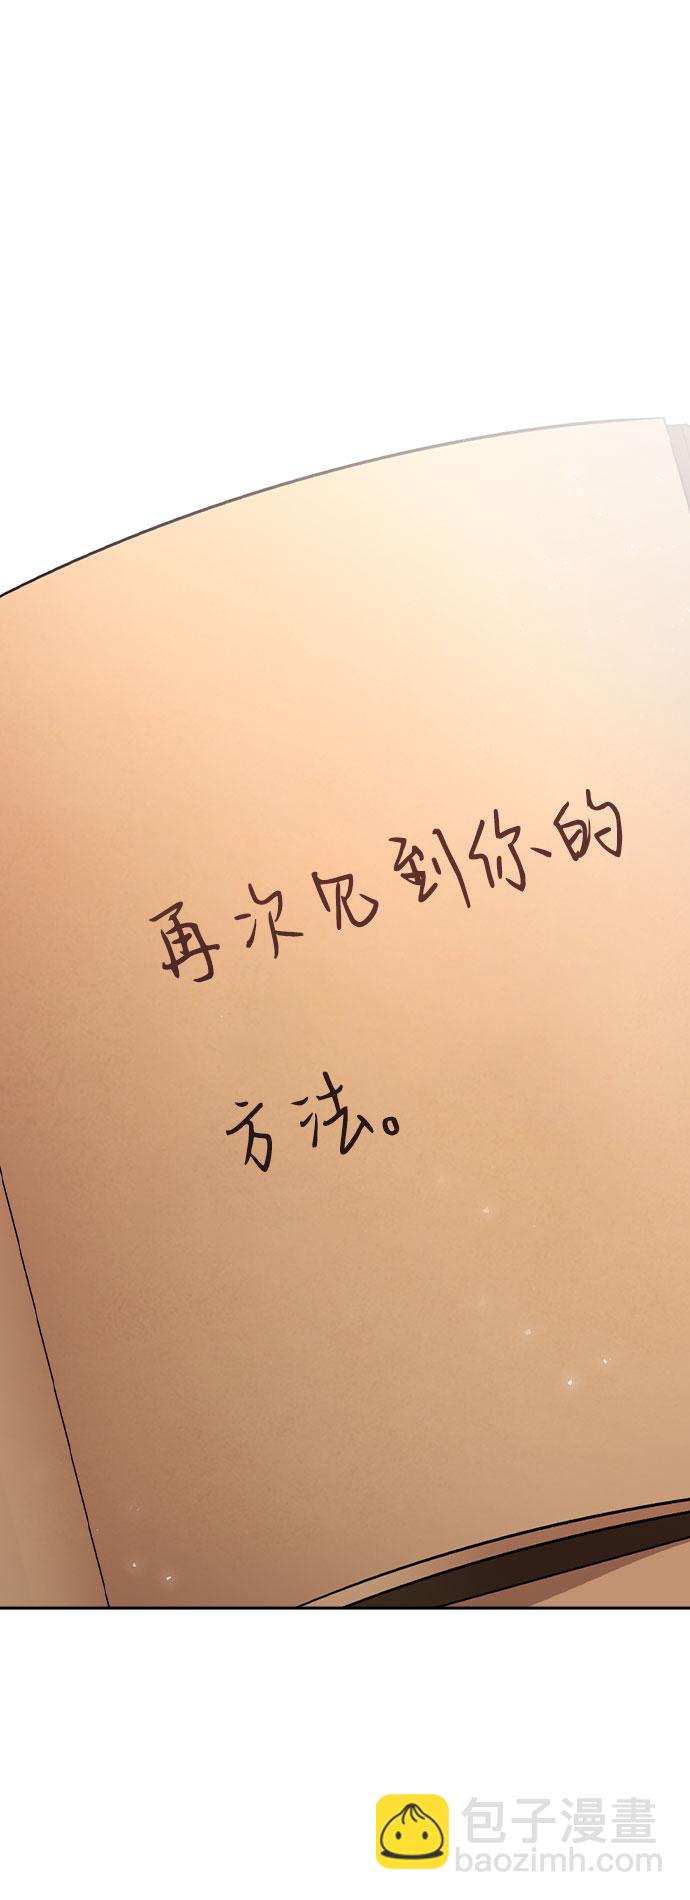 再次见到你的
方法。
包子漫畫
baozimh.com